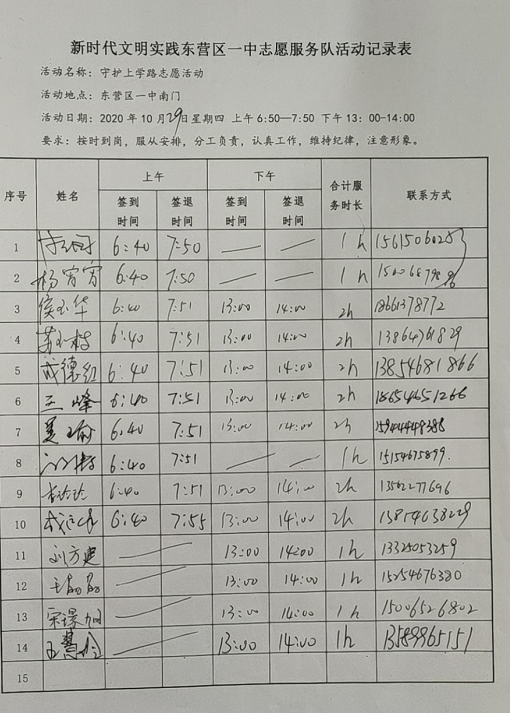 新时代文明实践东营区一中志愿服务队活动记录表
活动名称：守护上学路志愿活动
活动地点：东营区一中南门
活动日期：2020 年 10 月 29 日星期四 上午 6:50—7:50 下午 13：00-14:00
要求：按时到岗，服从安排，分工负责，认真工作，维持纪律，注意形象。
序号 姓名 上午 下午 合计服务时长 联系方式
签到时间 签退时间 签到时间 签退时间
1 6:40 7:50 — — 1h
2 杨宵宵 6:40 7:50 — — 1h
3 侯玉华 6:40 7:51 13:00 14:00 2h 18661378772
4 6:40 7:51 13:00 14:00 2h 13864761829
5 成德红 6:40 7:51 13:00 14:00 2h 13854681866
6 王峰 6:40 7:51 13:00 14:00 2h 18654651266
7 6:40 7:51 13:00 14:00 2h
8 6:40 7:51 — — 1h 15154675899
9 6:40 7:51 13:00 14:00 2h 13562277696
10 6:40 7:55 13:00 14:00 2h 13854638229
11 刘方建 — 13:00 14:00 1h 13325053259
12 王磊磊 — 13:00 14:00 1h 15254676380
13 — 13:00 14:00 1h 15006526802
14 王慧玲 — 13:00 14:00 1h 13589965151
15